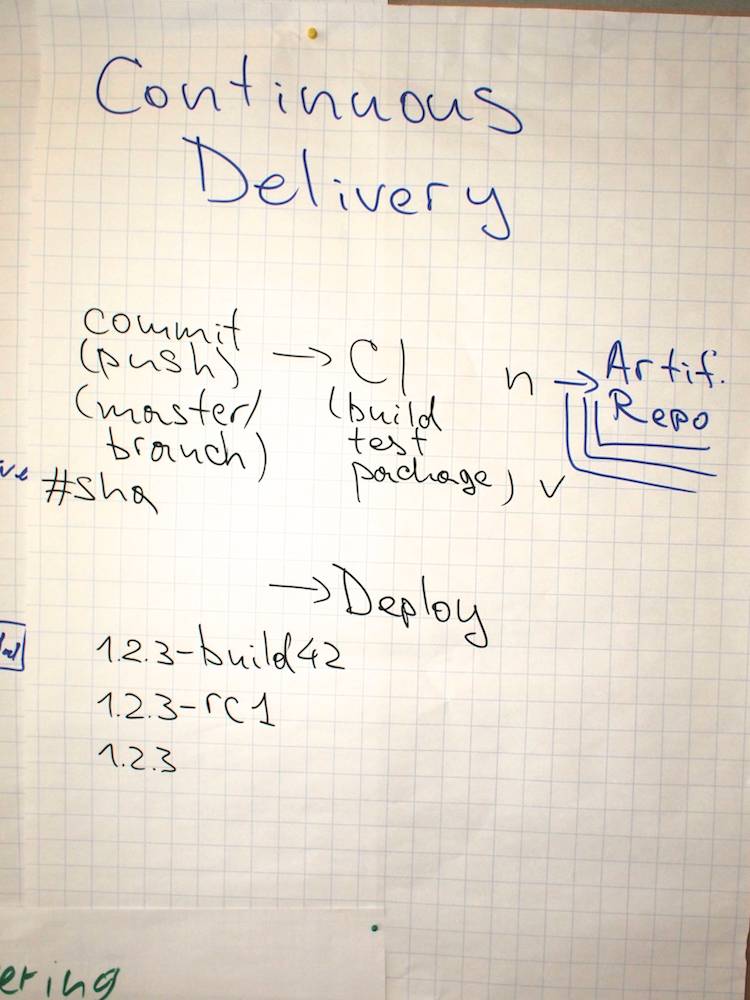 Continuous
Delivery
commit
(push)
(master/
branch)
#sha
→ CI
(build
test
package)
n → Artif.
Repo
v
→ Deploy
1.2.3-build42
1.2.3-rc1
1.2.3
ering